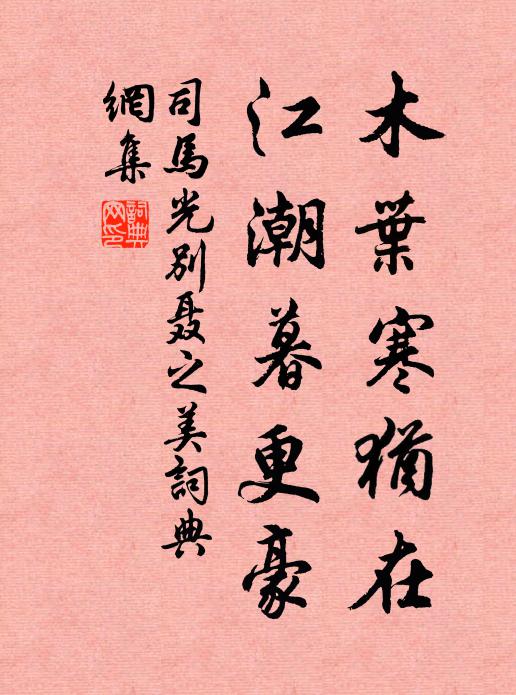 木葉寒猶在
江潮暮更豪
司馬光別聂之美詞典
網集
詞典網印